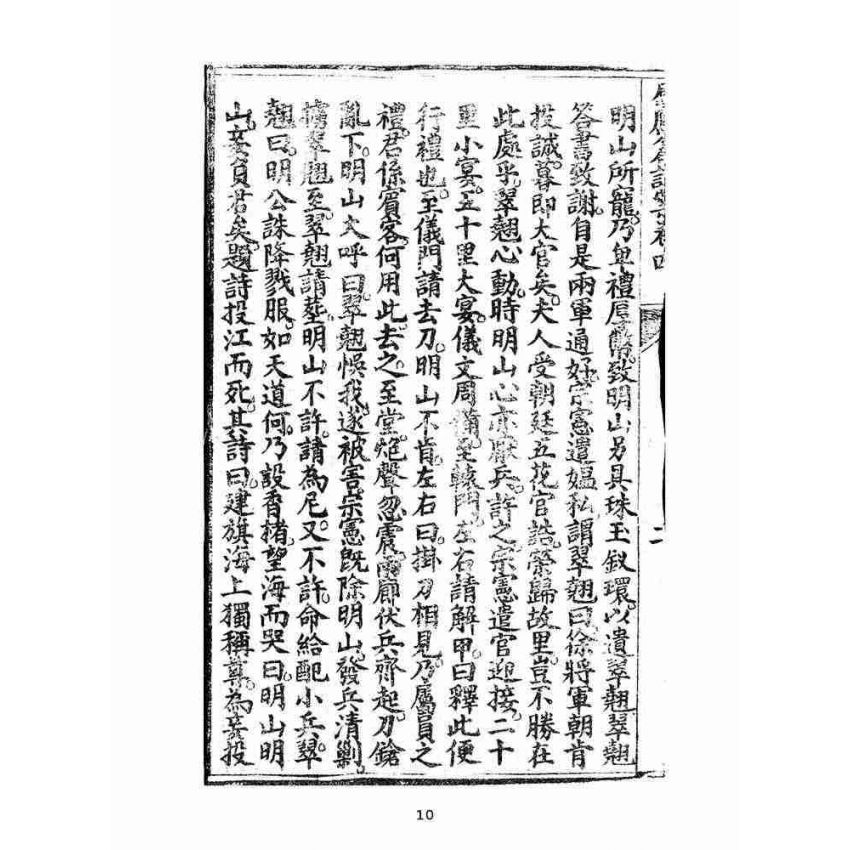 明山所寵。乃卑禮厚幣。致明山。另具珠玉釵環。以遺翠翹。翠翹
答書致謝。自是兩軍通好。宗憲遣嫗私謂翠翹曰。徐將軍朝肯
投誠。暮即大官矣。夫人受朝廷五花官誥。榮歸故里。豈不勝在
此處乎。翠翹心動。時明山心亦厭兵。許之。宗憲遣官迎接。二十
里小宴。五十里大宴。儀文周備。至轅門。左右請解甲。曰釋此便
行禮也。至儀門請去刀。明山不肯。左右曰。掛刀相見。乃屬員之
禮。君係賓客。何用此。去之。至堂。炮聲忽震。兩廊伏兵齊起。刀鎗
亂下。明山大呼曰。翠翹悞我。遂被害。宗憲既除明山。發兵清剿。
擄翠翹至。翠翹請塟明山。不許。請為尼。又不許。命給配小兵。翠
翹曰。明公誅降戮服。如天道何。乃設香楮。望海而哭曰。明山明
山。妾負君矣。題詩投江而死。其詩曰。建旗海上獨稱尊。為妾投
二
10